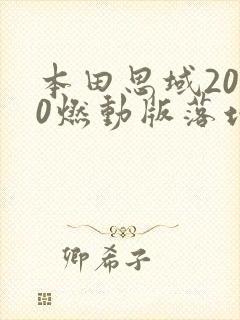 本田思域20
0燃动版落地
卿希子